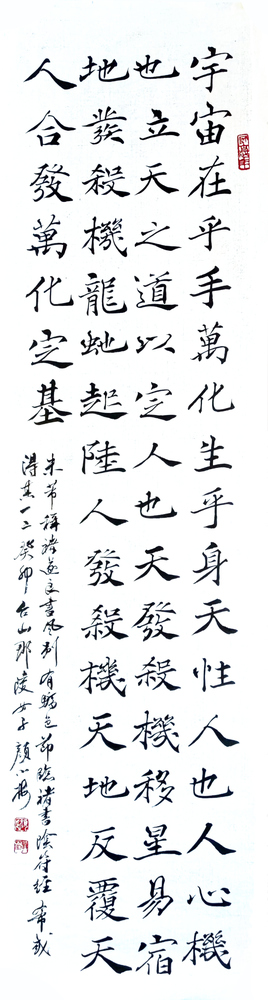 宇宙在乎手萬化生乎身天性人也人心機
也立天之道以定人也天發殺機移星易宿
地發殺機龍虵起陸人發殺機天地反覆天
人合發萬化定基
米芾稱遂良書風別有驕色節臨褚書陰符經希或
得其一二癸卯台山女子顏小梅